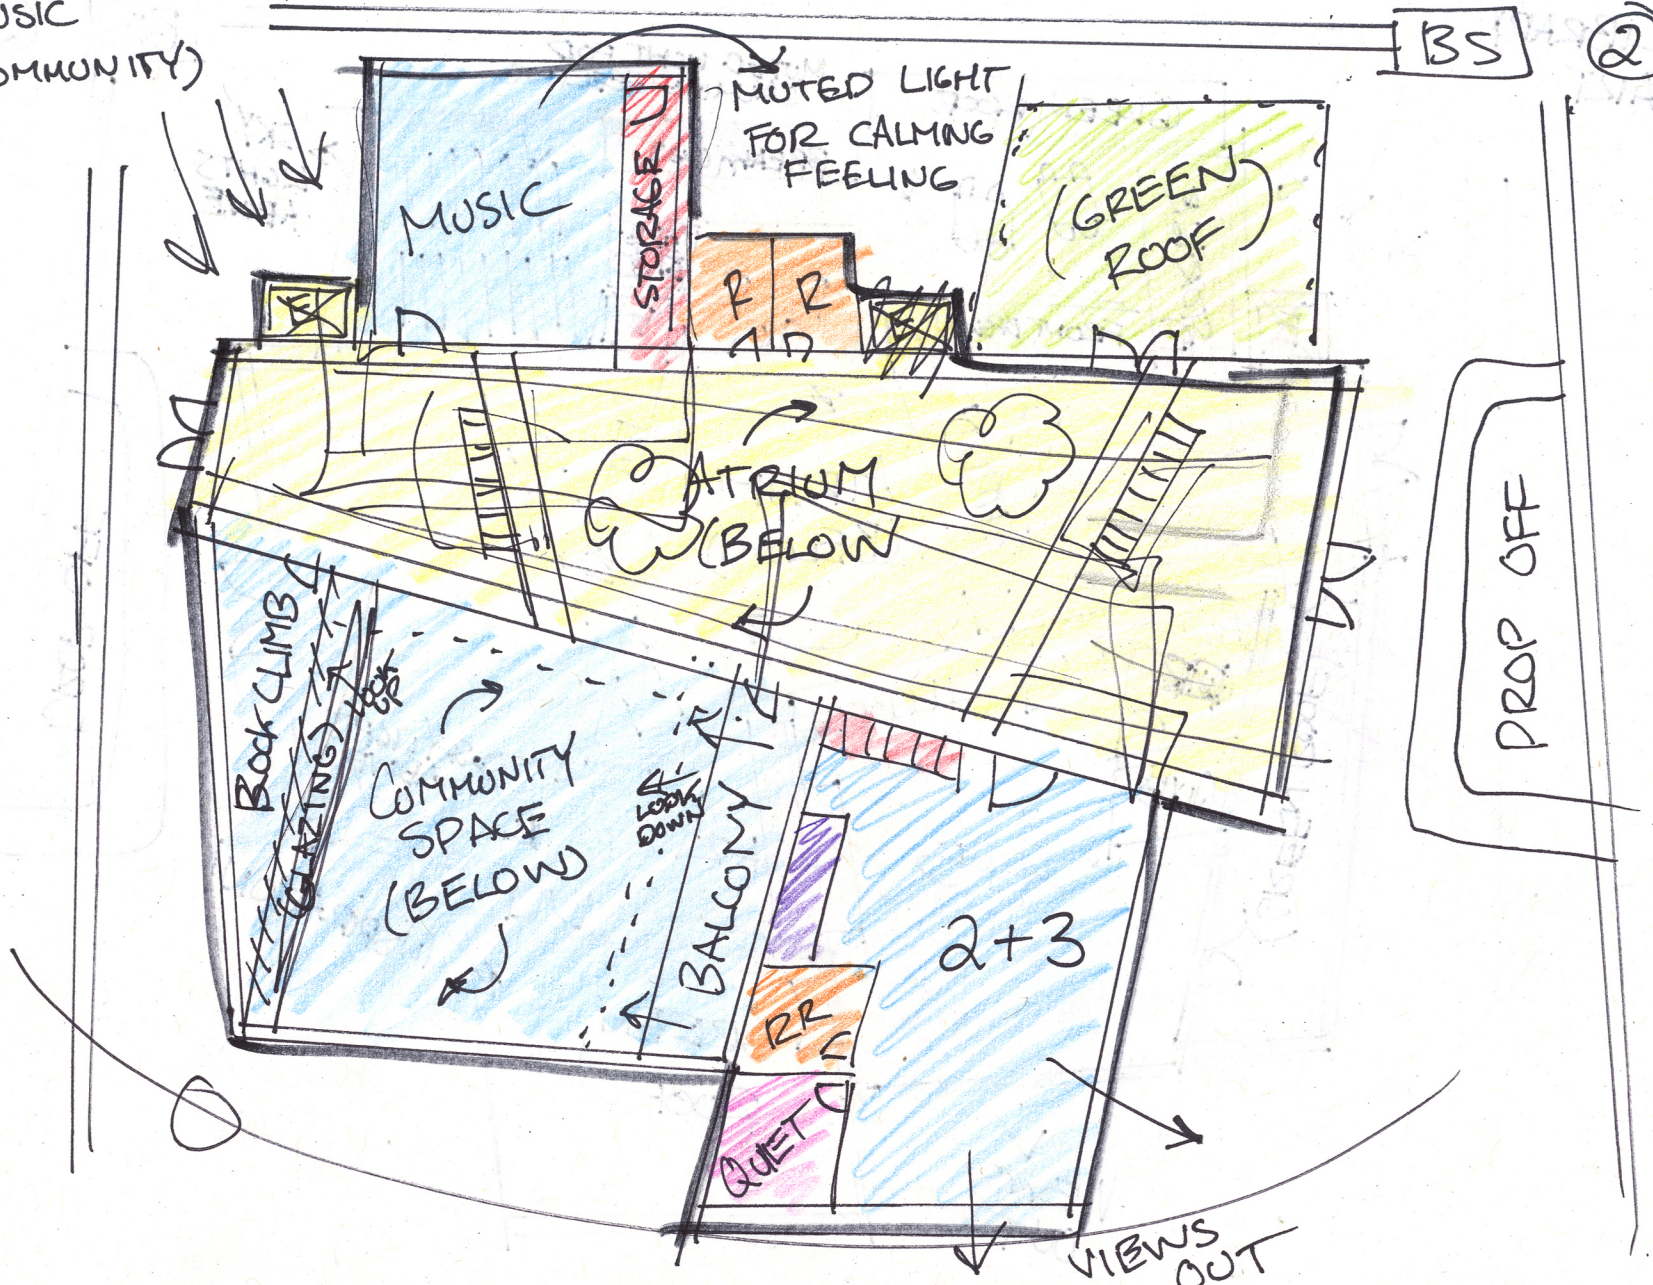 USIC
OMMUNITY)
BS
2
MUTED LIGHT
FOR CALMING
FEELING
MUSIC
STORAGE
R
R
(GREEN
ROOF)
E
ATRIUM
(BELOW
DROP OFF
ROCK CLIMB
(GLAZING)
LOOK
UP
COMMUNITY
SPACE
(BELOW)
LOOK
DOWN
BALCONY
2+3
RR
QUIET
VIEWS
OUT